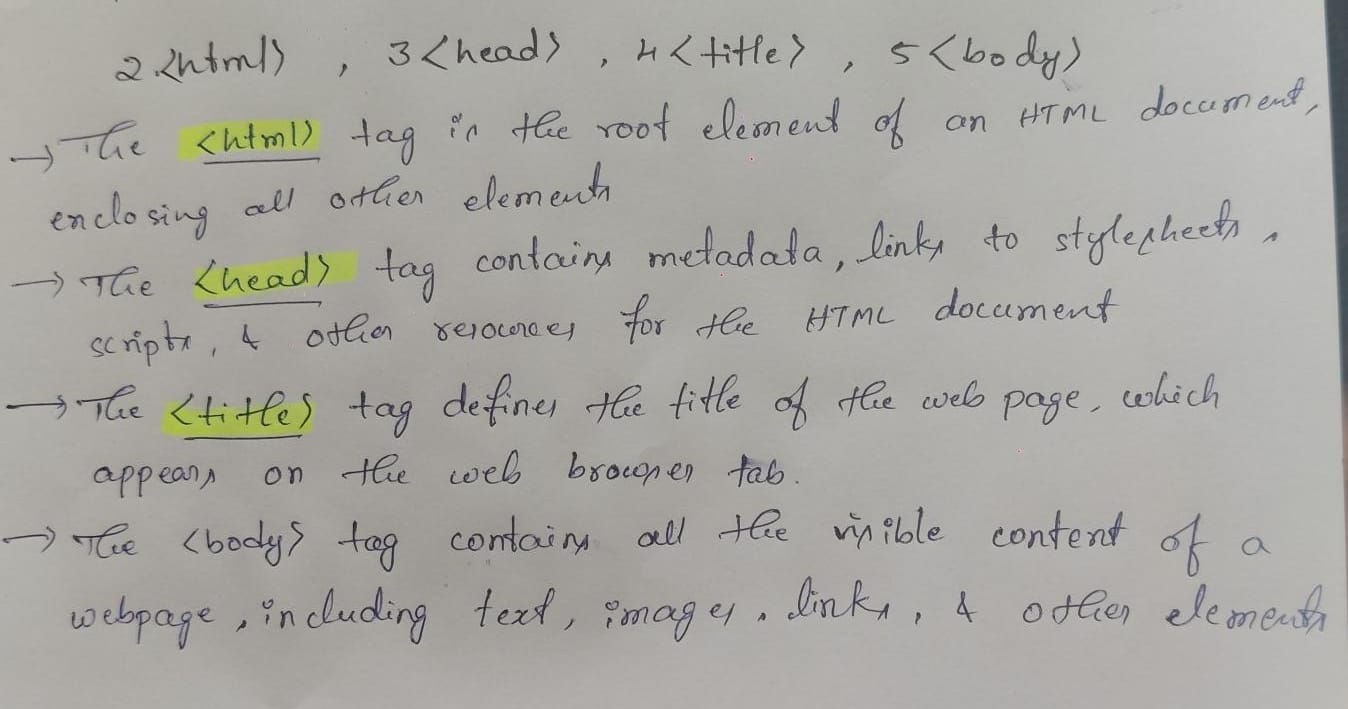 2.<html> , 3<head> , 4<title> , 5<body>
→ The <html> tag is the root element of an HTML document,
enclosing all other elements
→ The <head> tag contains metadata, links to stylesheets,
scripts, & other resources for the HTML document
→ The <title> tag defines the title of the web page, which
appears on the web browser tab.
→ The <body> tag contains all the visible content of a
webpage, including text, images, links, & other elements